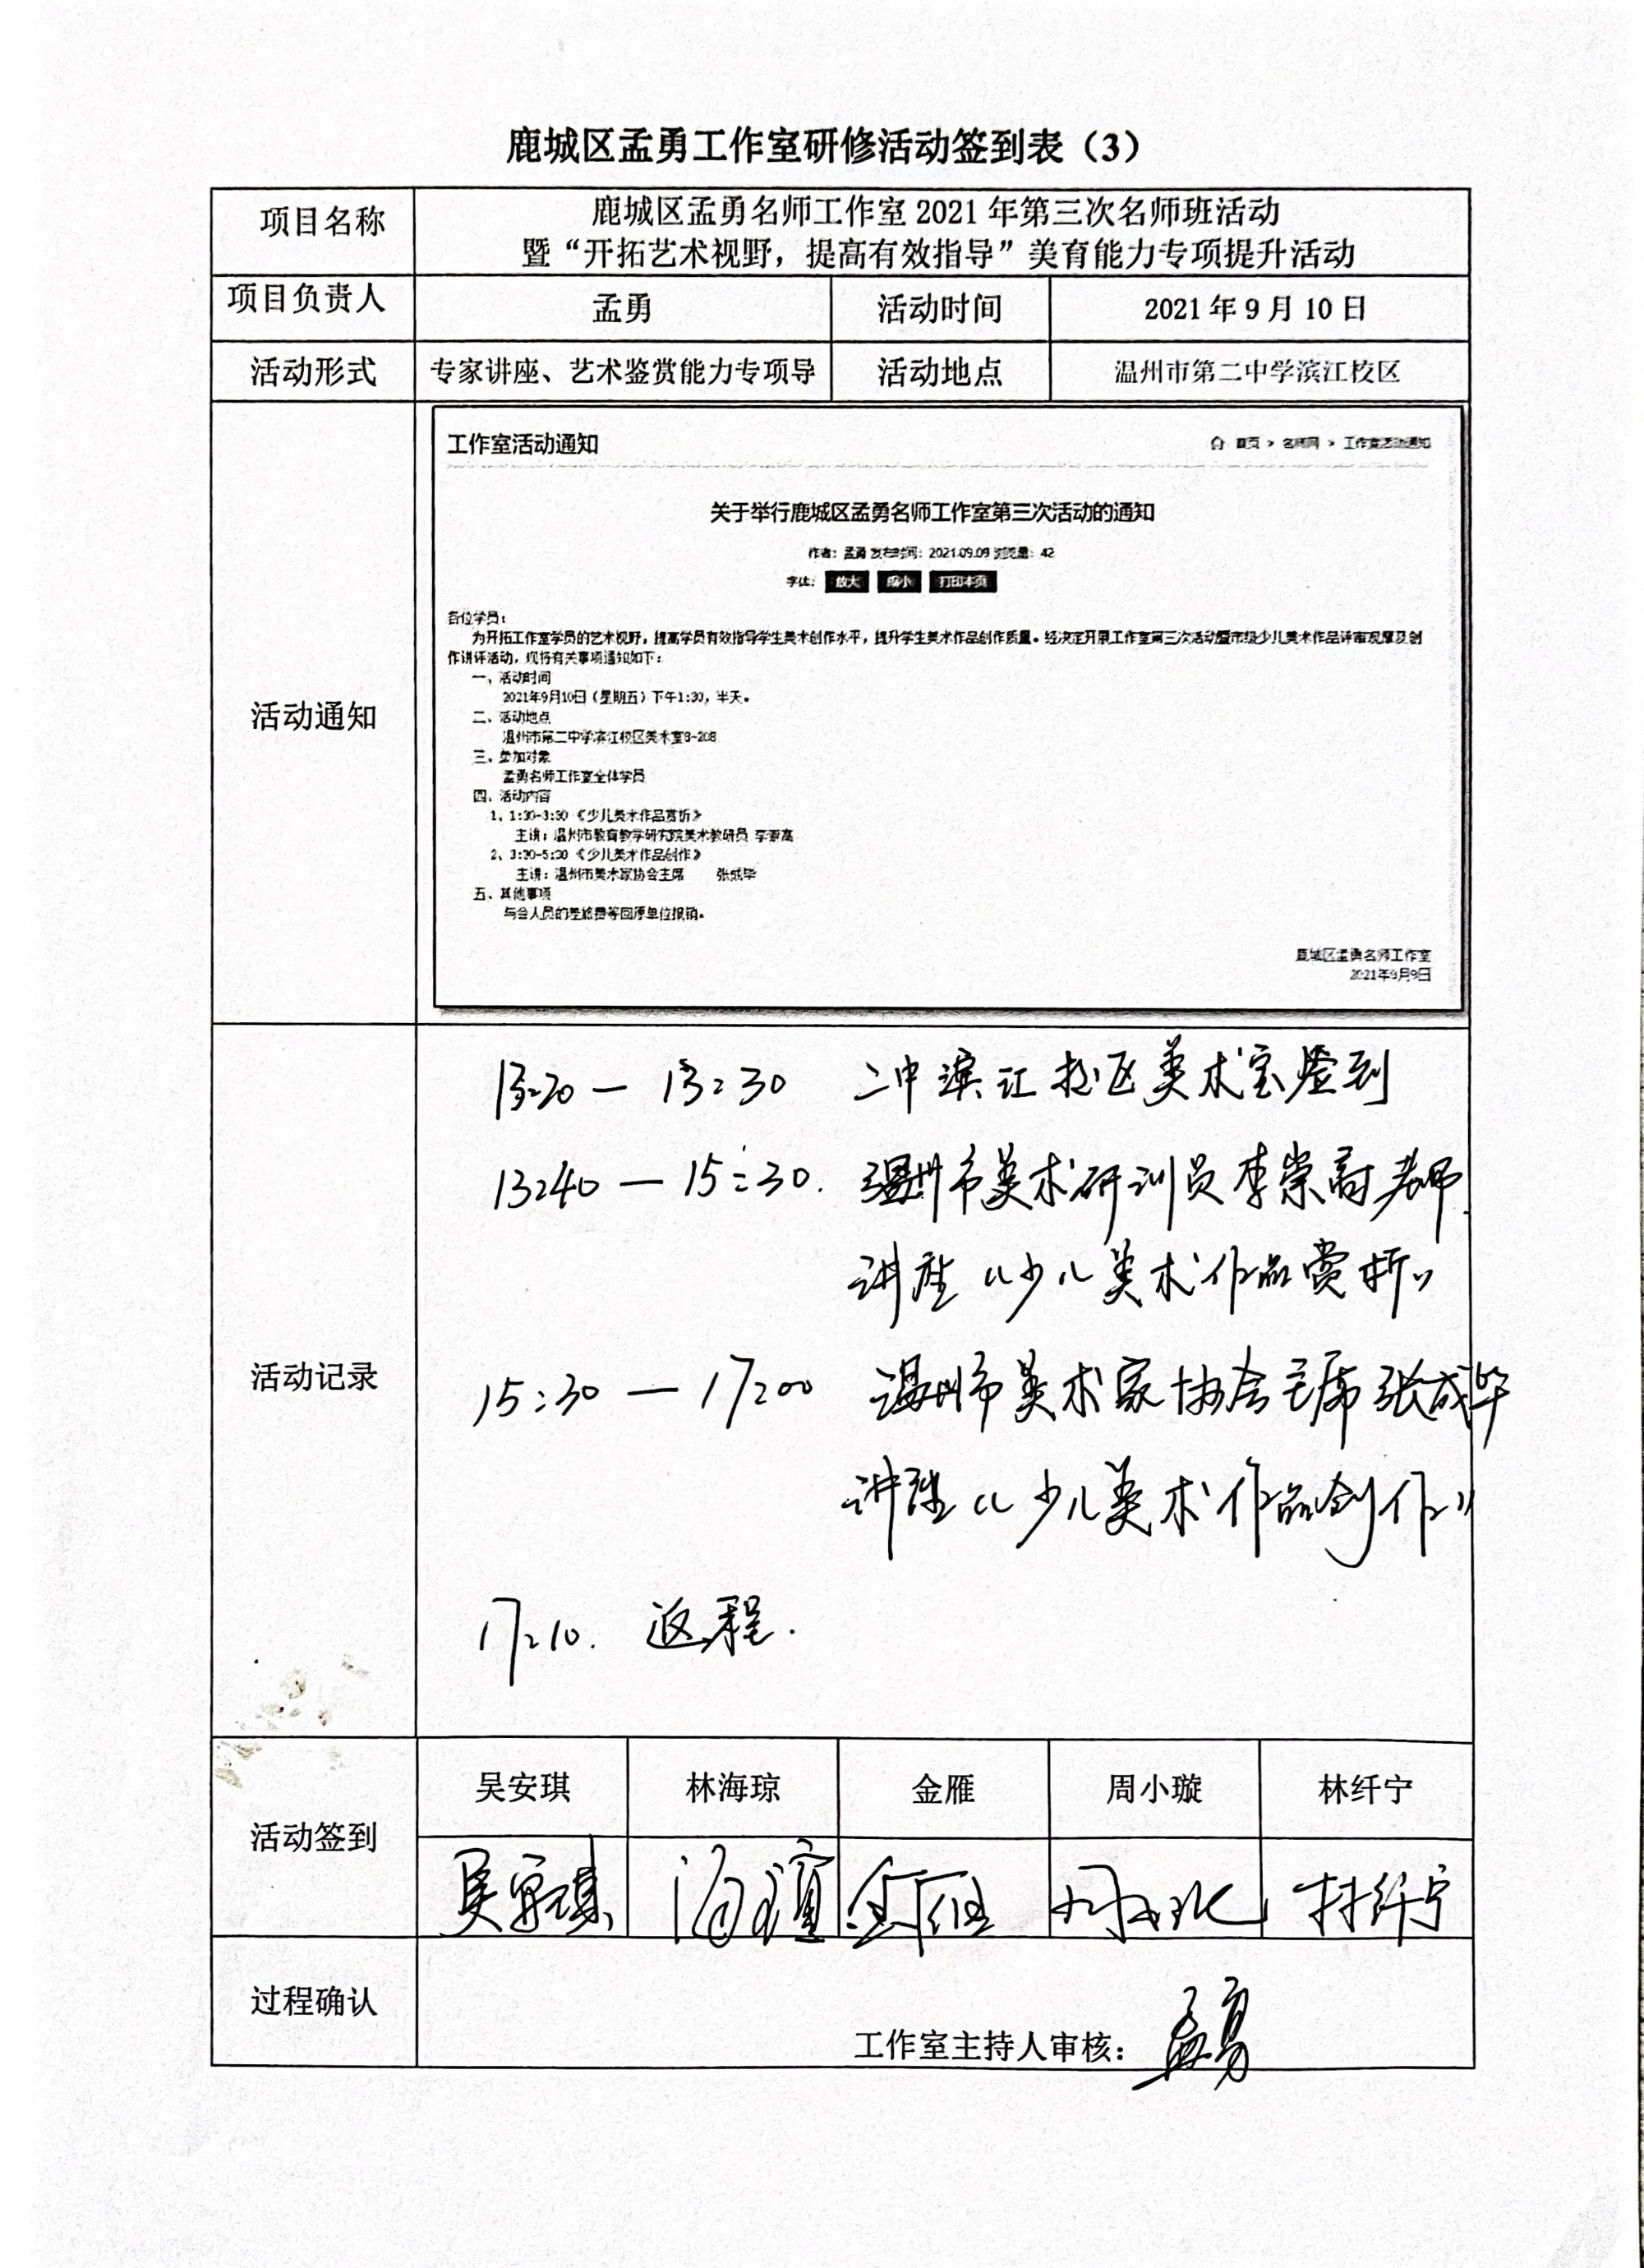 鹿城区孟勇工作室研修活动签到表（3）
项目名称
鹿城区孟勇名师工作室 2021 年第三次名师班活动
暨“开拓艺术视野，提高有效指导”美育能力专项提升活动
项目负责人
孟勇
活动时间
2021 年 9 月 10 日
活动形式
专家讲座、艺术鉴赏能力专项导
活动地点
温州市第二中学滨江校区
活动通知
工作室活动通知
首页 > 名师网 > 工作室活动通知
关于举行鹿城区孟勇名师工作室第三次活动的通知
作者：孟勇 发布时间：2021.09.09 浏览量：42
字体： 放大 缩小 打印本页
各位学员：
为开拓工作室学员的艺术视野，提高学员有效指导学生美术创作水平，提升学生美术作品创作质量。经决定开展工作室第三次活动暨市级少儿美术作品评审观摩及创
作讲评活动，现将有关事项通知如下：
一、活动时间
2021年9月10日（星期五）下午1:30，半天。
二、活动地点
温州市第二中学滨江校区美术室3-208
三、参加对象
孟勇名师工作室全体学员
四、活动内容
1、1:30-3:30《少儿美术作品赏析》
主讲：温州市教育教学研究院美术教研员 李崇高
2、3:30-5:00《少儿美术作品创作》
主讲：温州市美术家协会主席 张成毕
五、其他事项
与会人员的差旅费等回原单位报销。
鹿城区孟勇名师工作室
2021年9月9日
活动记录
13:20 — 13:30 二中滨江校区美术室签到
13:40 — 15:30. 温州市美术研训员李崇高老师
讲座《少儿美术作品赏析》
15:30 — 17:00 温州市美术家协会主席张成毕
讲座《少儿美术作品创作》
17:10. 返程.
活动签到
吴安琪
林海琼
金雁
周小璇
林纤宁
吴安琪
海琼
金雁
林纤宁
过程确认
工作室主持人审核：孟勇